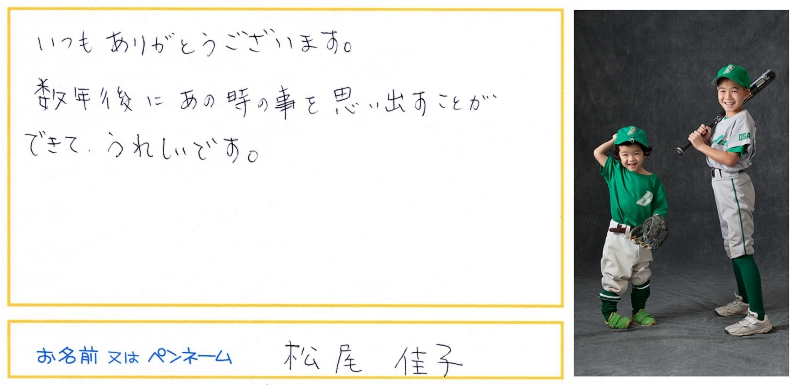 いつもありがとうございます。
数年後にあの時の事を思い出すことが
できて、うれしいです。
お名前 又は ペンネーム
松尾 佳子